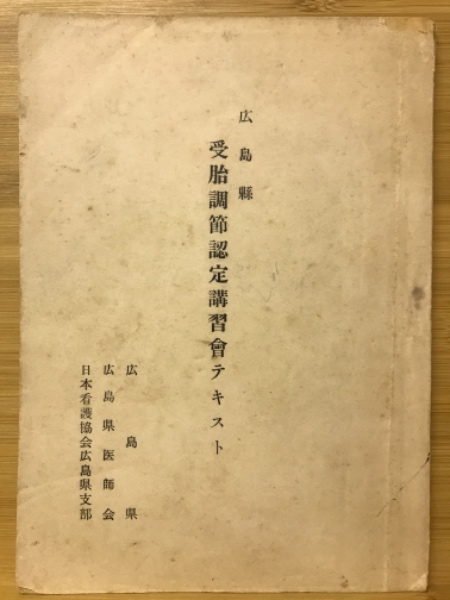 広島縣
受胎調節認定講習會テキスト
広島県
広島県医師会
日本看護協会広島県支部